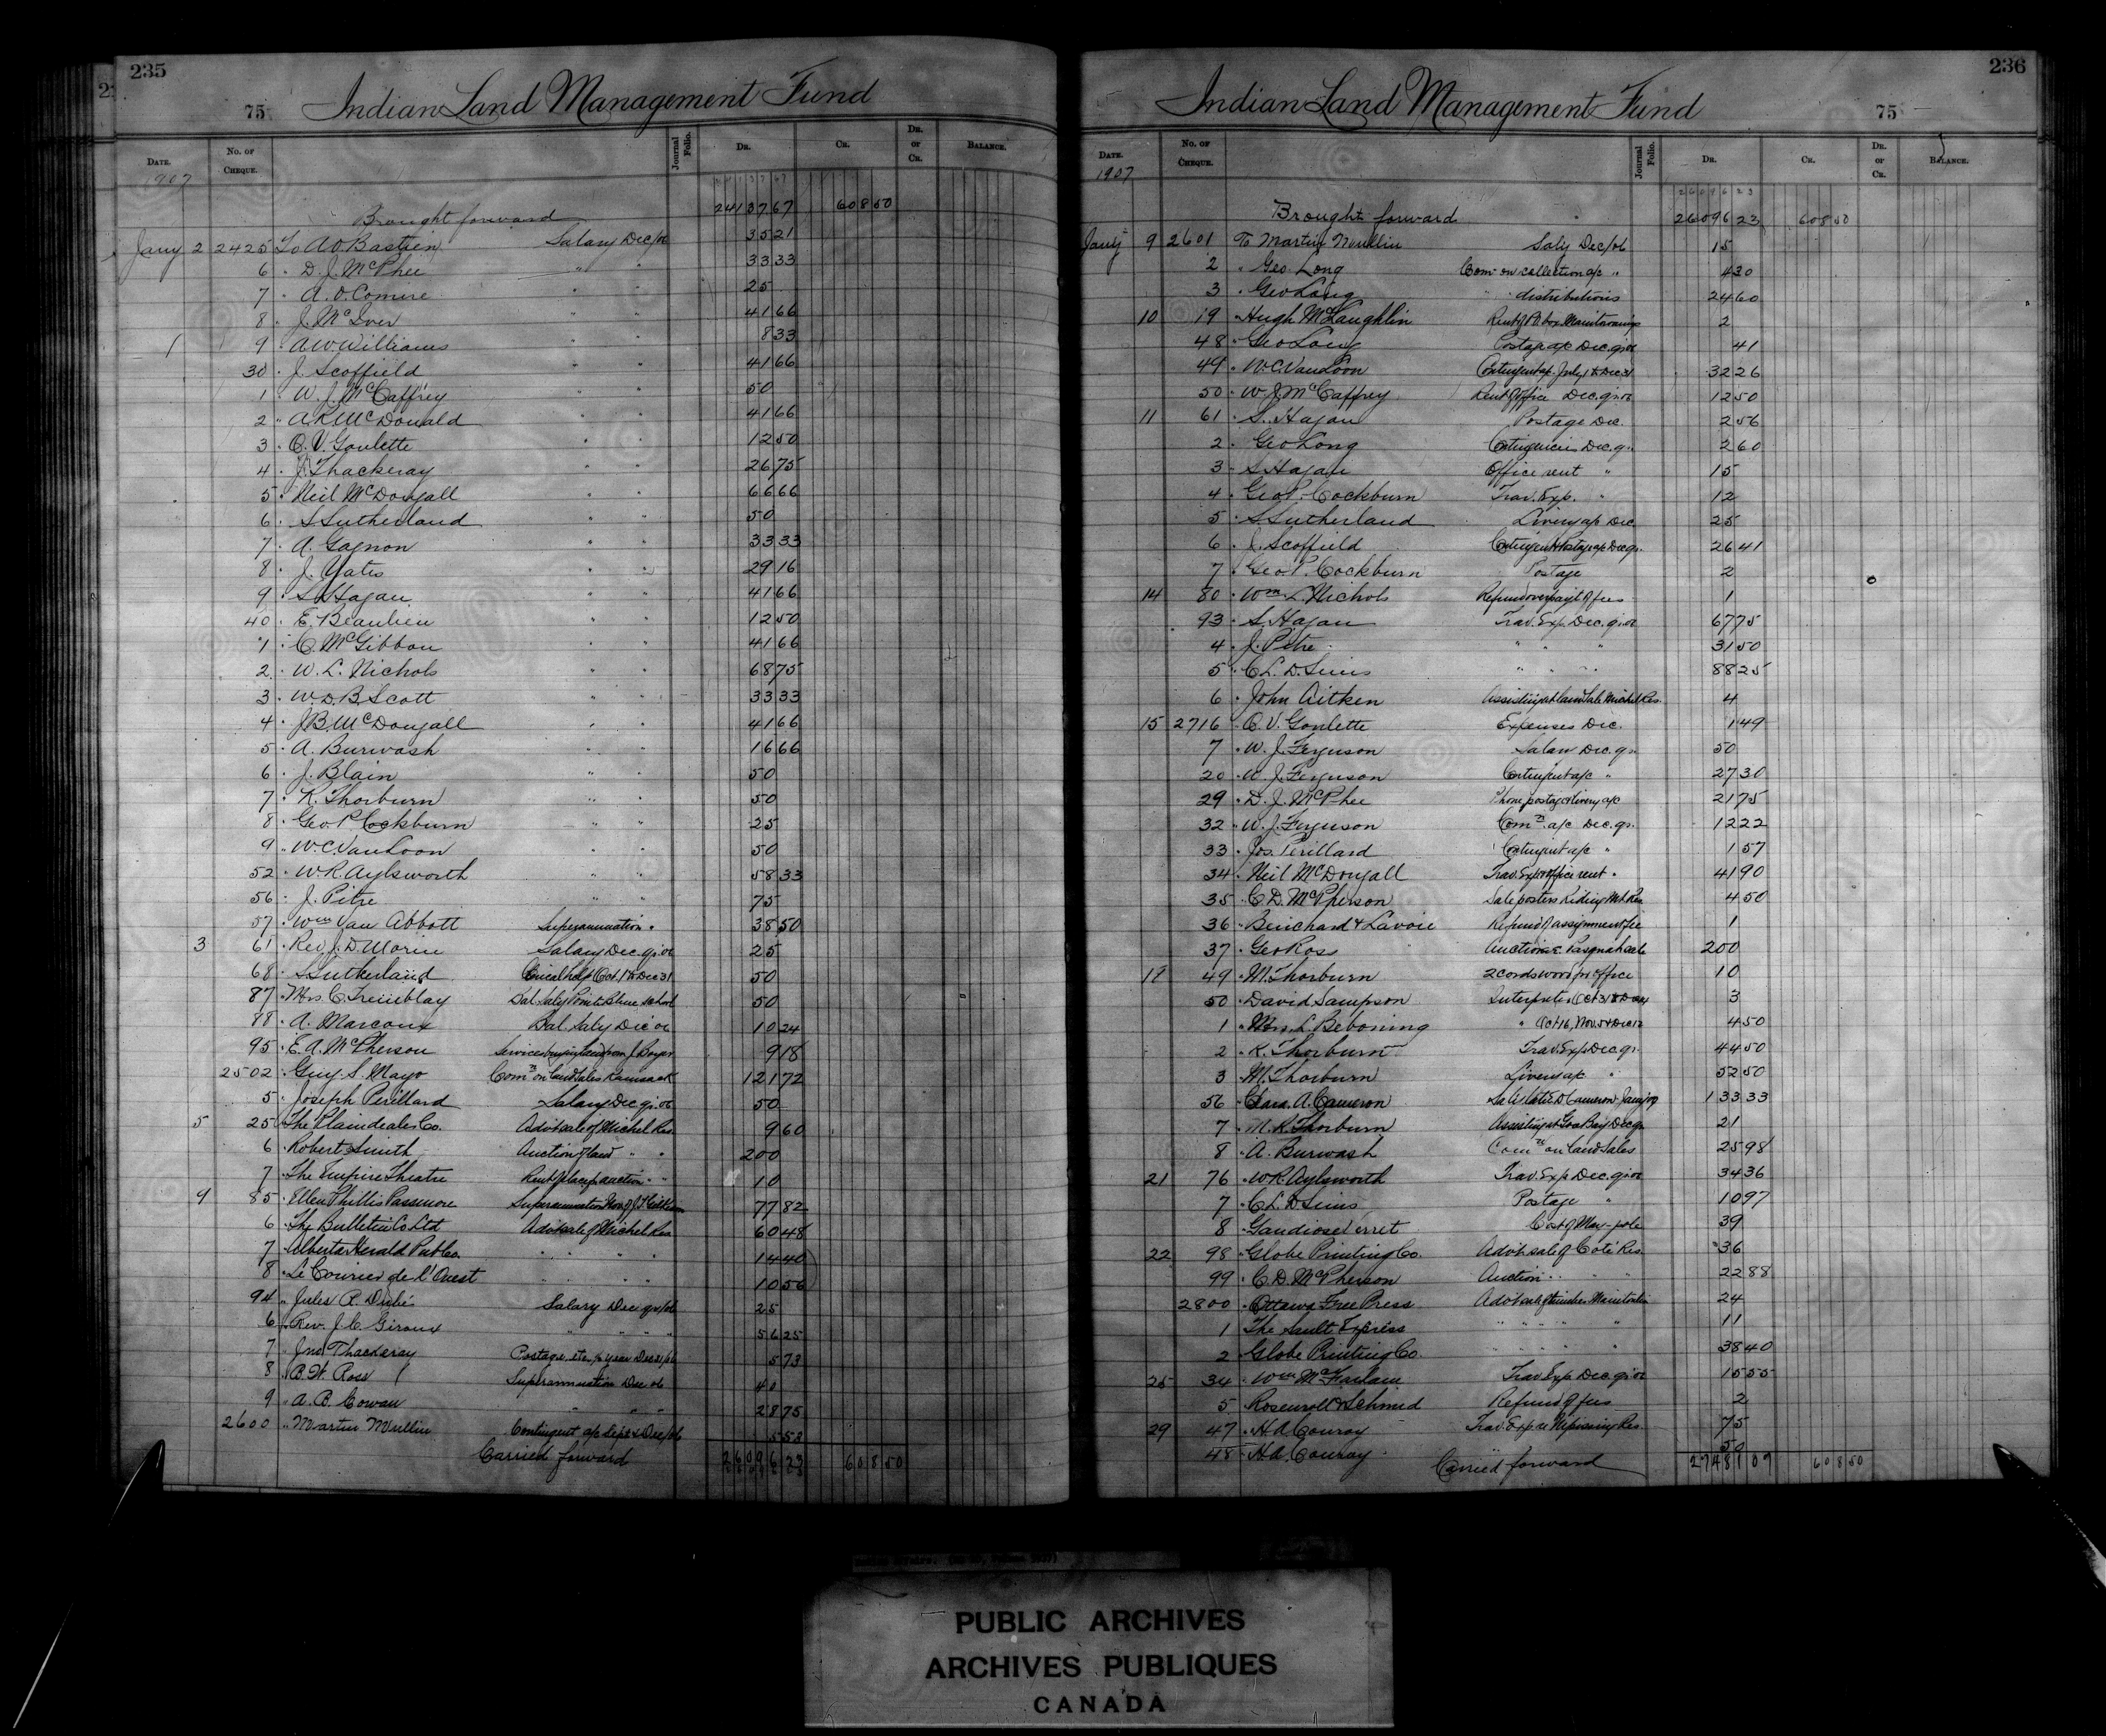 235
75 Indian Land Management Fund
Date. No. of Cheque. Journal Folio. Dr. Cr. Dr. or Cr. Balance.
1907
Brought forward 24137 67 608 50
Jany 2 2425 To A.O. Bastien Salary Dec/06 35 21
6 " D. J. McPhee " " 33 33
7 " A. O. Comire " " 25
8 " J. McIver " " 41 66
9 " A W Williams " " 8 33
30 " J. Scoffield " " 41 66
1 " W. J. McCaffrey " " 50
2 " A R McDonald " " 41 66
3 " C. V. Goulette " " 12 50
4 " J. Thackeray " " 26 75
5 " Neil McDougall " " 66 66
6 " S Sutherland " " 50
7 " A. Gagnon " " 33 33
8 " J. Yates " " 29 16
9 " S. Hagan " " 41 66
40 " E. Beaulieu " " 12 50
1 " C. McGibbon " " 41 66
2 " W. L. Nichols " " 68 75
3 " W. D. B. Scott " " 33 33
4 " J B. McDougall " " 41 66
5 " A. Burwash " " 16 66
6 " J. Blain " " 50
7 " R. Thorburn " " 50
8 " Geo. P. Cockburn " " 25
9 " W. C. Van Loon " " 50
52 " W R. Aylsworth " " 58 33
56 " J. Pitre " " 75
57 " Wm Van Abbott Superannuation " 38 50
3 61 " Rev. J. D. Morin Salary Dec. qr. 06 25
68 " S Sutherland Oct 1 to Dec 31 50
87 " Mrs. C. Tremblay Bal. Saly Point Bleue School 50
88 " A. Marcoux Bal. Saly Dec 06 10 24
95 " E. A. McPherson Services J. Boyer 9 18
2502 " Guy S. Mayo Comn on land sales Kamsack 121 72
5 " Joseph Perillard Salary Dec qr. 06 50
5 25 " The Plaindealer Co. Advt sale of Michel Res. 9 60
6 " Robert Smith Auction of land " " 200
7 " The Empire Theatre Rent of place auction " " 10
9 85 " Ellen Phillis Passmore Superannuation 77 82
6 " The Bulletin Co Ltd Advt sale of Michel Res 60 48
7 " Alberta Herald Pub Co. " " " " 14 40
8 " Le Courier de l'Ouest " " " " 10 56
94 " Jules R. Dubé Salary Dec qr/06 25
6 " Rev. J. C. Giroux " " " " 56 25
7 " Jno Thackeray Postage, etc, ½ year Dec 31/06 5 73
8 " B. W. Ross Superannuation Dec 06 40
9 " A. B. Cowan " " " 28 75
2600 " Martin Mullin Contingent a/c Sept & Dec/06 5 53
Carried forward 26096 23 608 50
236
Indian Land Management Fund 75
Date. No. of Cheque. Journal Folio. Dr. Cr. Dr. or Cr. Balance.
1907
Brought forward 26096 23 608 50
Jany 9 2601 To Martin Mullin Saly Dec/06 15
2 " Geo. Long Comn on collection a/c " 4 30
3 " Geo Long " " distributions 24 60
10 19 " Hugh McLaughlin Rent of P.O. box Manitowaning 2
48 " Geo Long Postage a/c Dec. qr 06 41
49 " W. C. Van Loon Contingent a/c July 1 to Dec 31 32 26
50 " W J McCaffrey Rent of office Dec. qr. 06 12 50
11 61 " S. Hagan Postage Dec. 2 56
2 " Geo Long Contingencies Dec. q. 2 60
3 " S Hagan Office rent " 15
4 " Geo P. Cockburn Trav. Exp. " 12
5 " S Sutherland Livery a/c Dec 25
6 " J. Scoffield Contingent & Postage a/c Dec qr. 26 41
7 " Geo. P. Cockburn Postage 2
14 80 " Wm L. Nichols Refund overpayt of fees 1
93 " S. Hagan Trav. Exp. Dec. qr. 06 67 75
4 " J. Pitre " " " 31 50
5 " C. L. D. Sims " " " 88 25
6 " John Aitken Assisting at land sale Michel Res. 4
15 2716 " C. V. Goulette Expenses Dec. 1 49
7 " W. J. Ferguson Salary Dec. q. 50
20 " W. J. Ferguson Contingent a/c " 27 30
29 " D. J. McPhee Phone postage & livery a/c 21 75
32 " W. J. Ferguson Comn a/c Dec. qr. 12 22
33 " Jos. Perillard Contingent a/c " 1 57
34 " Neil McDougall Trav. Exp & office rent " 41 90
35 " C. D. McPherson Sale posters Riding Mt Res 4 50
36 " Beuchard & Lavoie Refund of assignment fee 1
37 " Geo Ross Auctioneer Pasquah sale 200
49 " M. Thorburn 2 cords wood for office 10
50 " David Sampson Interpreter Oct 31 & Dec 3
1 " Mrs. L. Beboning " Oct 16, Nov. 5 & Dec 12 4 50
2 " R. Thorburn Trav. Exp Dec qr. 44 50
3 " M. Thorburn Livery a/c " 52 50
56 " Clara A. Cameron E D Cameron Jany/07 133 33
7 " M. R. Thorburn Assisting at Gore Bay Dec qr 21
8 " A. Burwash Comn on land sales 25 98
21 76 " W R. Aylsworth Trav. Exp Dec. qr 06 34 36
7 " C. L. D. Sims Postage " 10 97
8 " Gaudiose Verret Cost of May-pole 39
22 98 " Globe Printing Co. Advt sale of Coté Res. 36
99 " C. D. McPherson Auction " " " 22 88
2800 " Ottawa Free Press Advt sale of timber Manitoulin 24
1 The Sault Express " " " " 11
2 Globe Printing Co. " " " " 38 40
25 34 " Wm McFarlane Trav. Exp. Dec. qr 06 15 55
5 Rosenroll & Schmid Refund of fees 2
29 47 " H A Conroy Trav. Exp re Nipissing Res. 75
48 " H. A. Conroy " 50
Carried forward 27481 07 608 50
PUBLIC ARCHIVES
ARCHIVES PUBLIQUES
CANADA